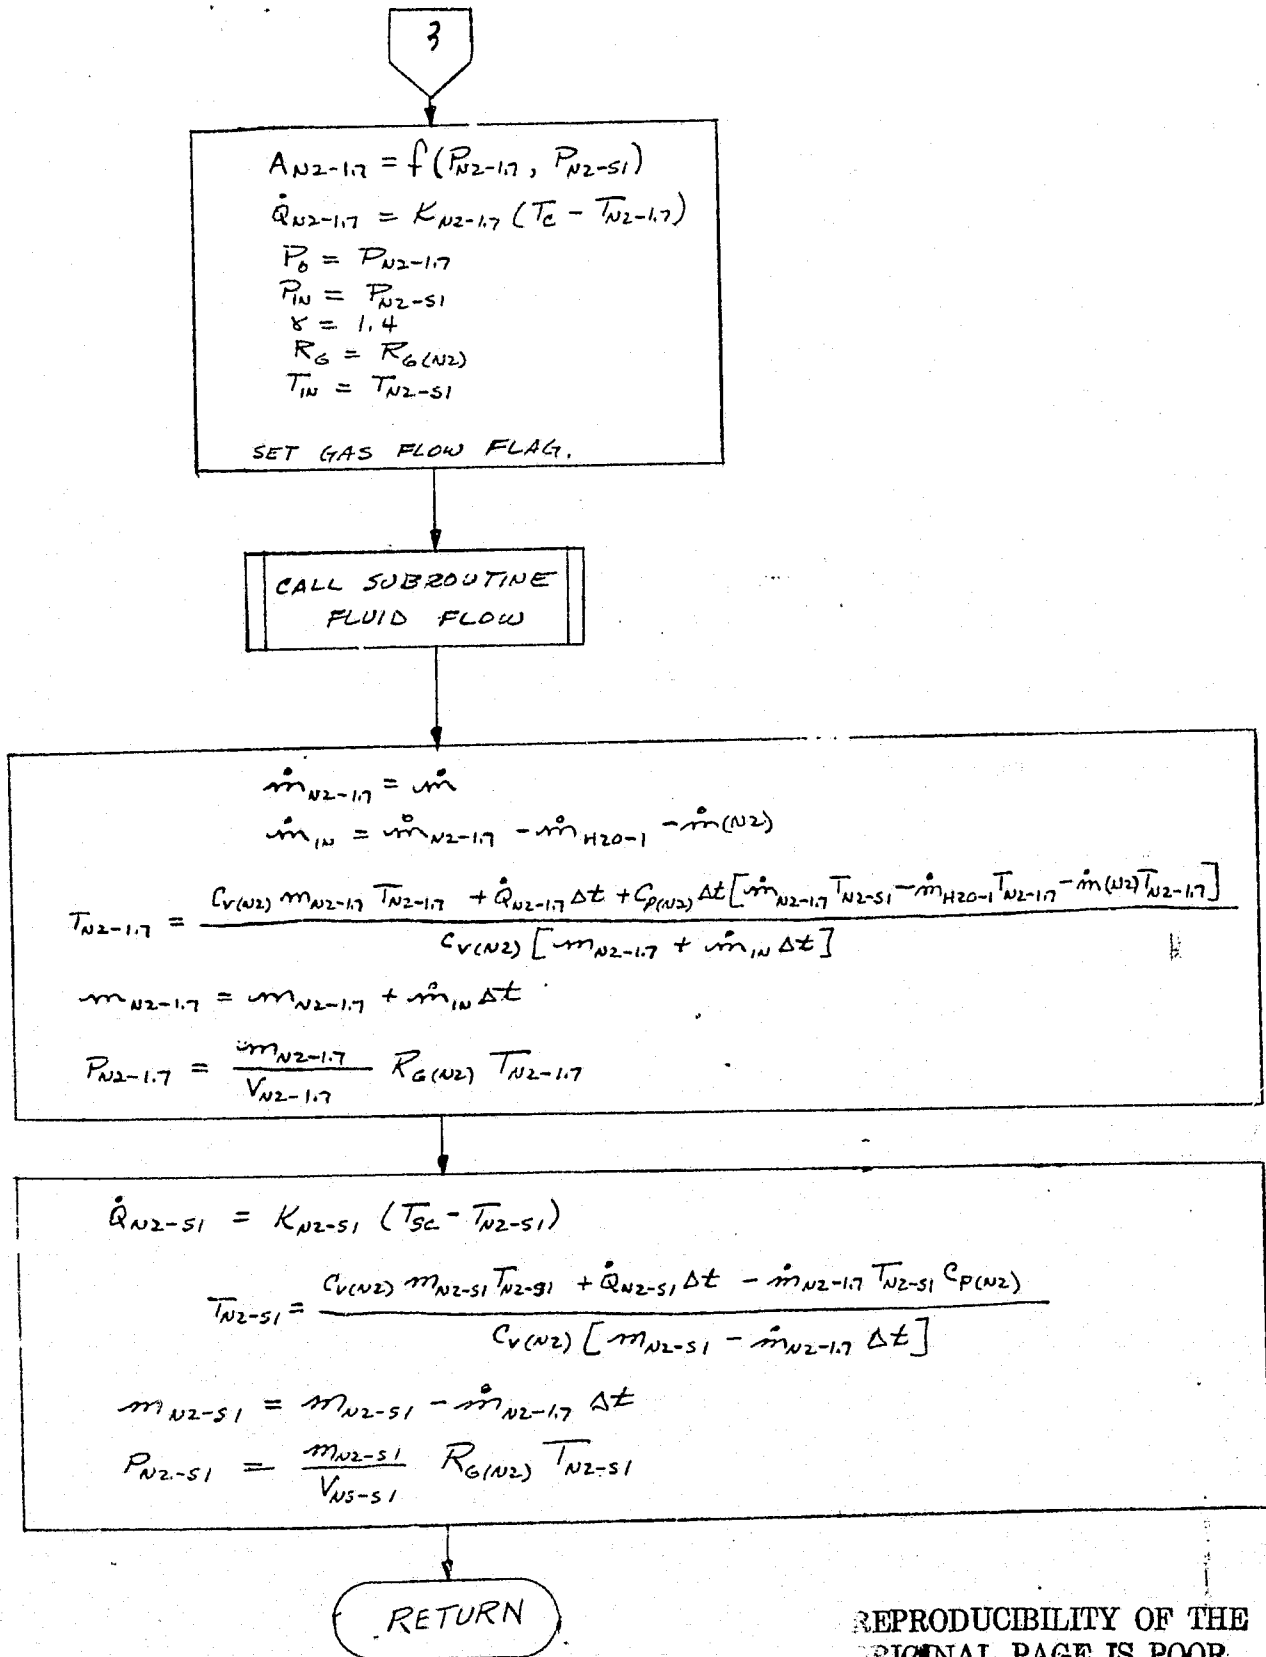 3
A_{N2-1.7} = f(P_{N2-1.7}, P_{N2-S1})
Q̇_{N2-1.7} = K_{N2-1.7} (T_C - T_{N2-1.7})
P_0 = P_{N2-1.7}
P_{IN} = P_{N2-S1}
γ = 1.4
R_G = R_{G(N2)}
T_{IN} = T_{N2-S1}
SET GAS FLOW FLAG.
CALL SUBROUTINE
FLUID FLOW
ṁ_{N2-1.7} = ṁ
ṁ_{IN} = ṁ_{N2-1.7} - ṁ_{H2O-1} - ṁ(N2)
T_{N2-1.7} = \frac{C_{V(N2)} m_{N2-1.7} T_{N2-1.7} + Q̇_{N2-1.7} Δt + C_{P(N2)} Δt [ṁ_{N2-1.7} T_{N2-S1} - ṁ_{H2O-1} T_{N2-1.7} - ṁ(N2) T_{N2-1.7}]}{C_{V(N2)} [m_{N2-1.7} + ṁ_{IN} Δt]}
m_{N2-1.7} = m_{N2-1.7} + ṁ_{IN} Δt
P_{N2-1.7} = \frac{m_{N2-1.7}}{V_{N2-1.7}} R_{G(N2)} T_{N2-1.7}
Q̇_{N2-S1} = K_{N2-S1} (T_{SC} - T_{N2-S1})
T_{N2-S1} = \frac{C_{V(N2)} m_{N2-S1} T_{N2-S1} + Q̇_{N2-S1} Δt - ṁ_{N2-1.7} T_{N2-S1} C_{P(N2)}}{C_{V(N2)} [m_{N2-S1} - ṁ_{N2-1.7} Δt]}
m_{N2-S1} = m_{N2-S1} - ṁ_{N2-1.7} Δt
P_{N2-S1} = \frac{m_{N2-S1}}{V_{NS-S1}} R_{G(N2)} T_{N2-S1}
RETURN
REPRODUCIBILITY OF THE
ORIGINAL PAGE IS POOR